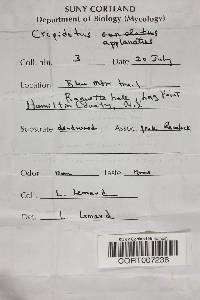 SUNY CORTLAND
Department of Biology (Mycology)
Crepidotus
applanatus
Coll. no. 3 Date 20 July
Location Blue Mtn trail,
Raquette Lake, Long Point
Hamilton County, N.Y.
Substrate deadwood Assoc.
Odor None Taste None
Col. L. Lemard
Det. L. Lemard
CORT007238